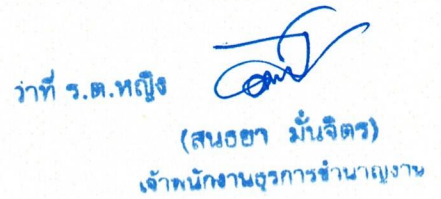 ว่าที่ ร.ต.หญิง
(สนธยา มั่นจิตร)
เจ้าพนักงานธุรการชำนาญงาน